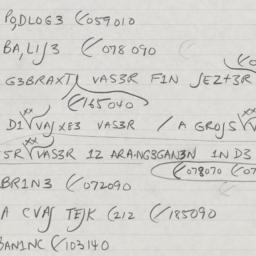 PO,DLOG3 (/059010
BA,LIJ3 (/078090
G3BRAXT VAS3R FIN JEZT3R
(/165040
DI VAJX83 VAS3R / A GROJS
5R VAS3R IZ ARANG3GAN3N IN D3
(/078070
BRIN3 (/072090
A CVAJ TEJK (212 (/185090
BANINC (/103140